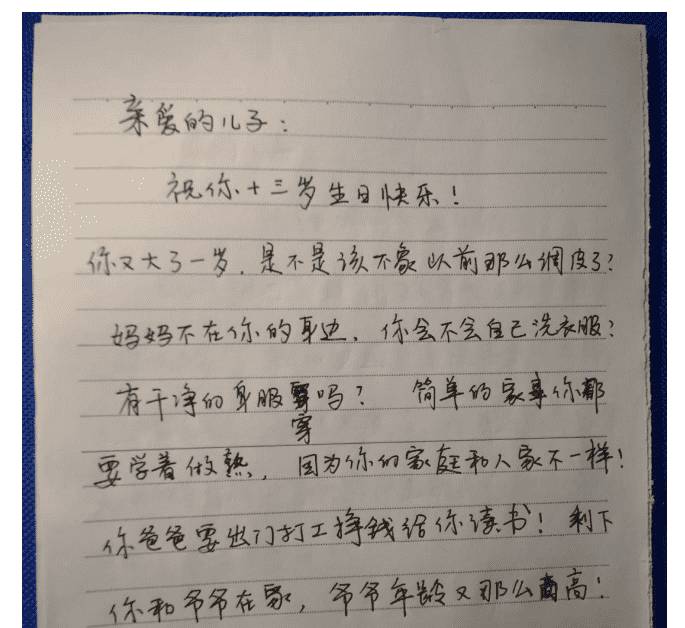 亲爱的儿子：
祝你十三岁生日快乐！
你又大了一岁，是不是该不象以前那么调皮了？
妈妈不在你的身边，你会不会自己洗衣服？
有干净的身服穿吗？ 简单的家事你都
要学着做熟，因为你的家庭和人家不一样！
你爸爸要出门打工挣钱给你读书！剩下
你和爷爷在家，爷爷年龄又那么高！